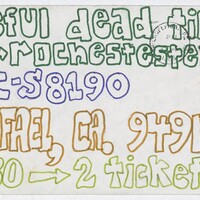 eful dead ti
→rochestester
C-S8190
FAEL, CA. 949
0 → 2 ticket